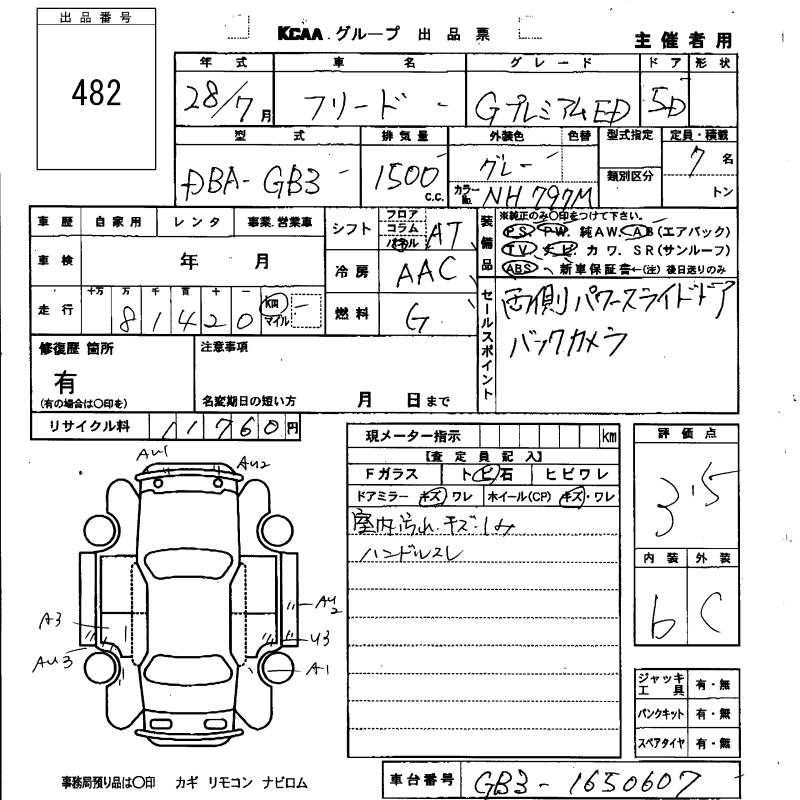 出品番号
482
KCAA グループ 出品票
主催者用
年式 車名 グレード ドア 形状
28/7月 フリード Gプレミアム ED 5D
型式 排気量 外装色 色替 型式指定 定員・積載
類別区分
DBA-GB3 1500 C.C. グレー カラーNo. NH797M 7名
トン
車歴 自家用 レンタ 事業.営業車
シフト フロア コラム パネル AT
装備品
※純正のみ〇印をつけて下さい。
PS. PW. 純AW. AB(エアバック)
TV. ナビ. カワ. SR(サンルーフ)
ABS 、新車保証書←(注) 後日送りのみ
車検 年 月
冷房 AAC
走行 十万 万 千 百 十 一
81420 Km マイル
燃料 G
セールスポイント
両側パワースライドドア
バックカメラ
修復歴 箇所
有
(有の場合は〇印を)
注意事項
名変期日の短い方 月 日まで
リサイクル料 11760円
現メーター指示 km
【査定員記入】
Fガラス トビ石 ヒビワレ
ドアミラー キズ・ワレ ホイール(CP) キズ・ワレ
室内汚れ.キズ.シミ
ハンドルスレ
評価点
3.5
内装 外装
b C
AU1
AU2
A3
AU3
AU2
U3
A1
ジャッキ工具 有・無
パンクキット 有・無
スペアタイヤ 有・無
事務局預り品は〇印 カギ リモコン ナビロム
車台番号 GB3-1650607